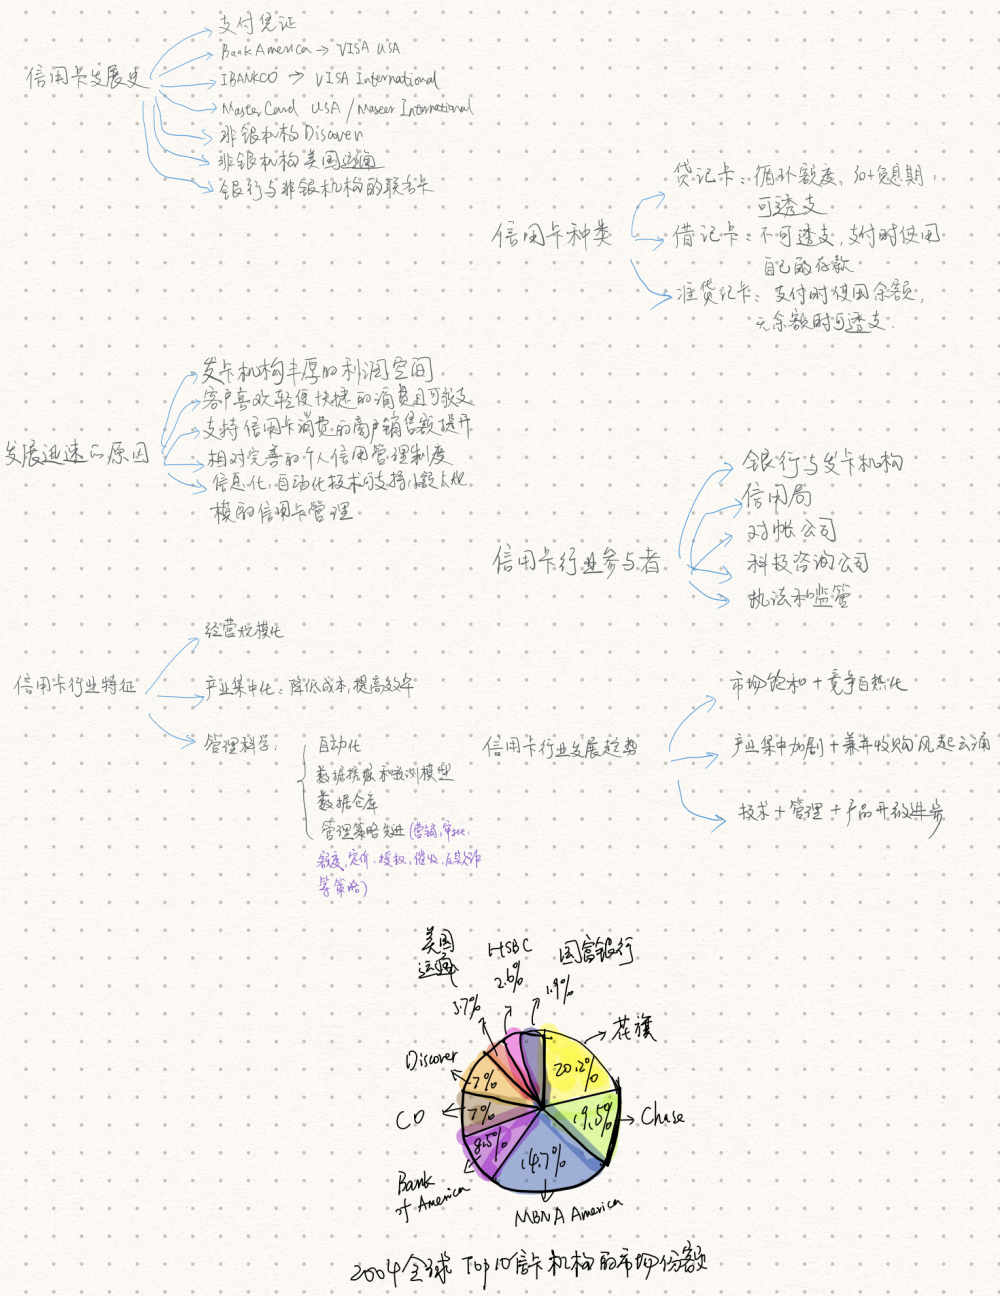 信用卡发展史
支付凭证
Bank America → VISA USA
IBANKCO → VISA International
Master Card USA / Master International
非银机构 Discover
非银机构 美国运通
银行与非银机构的联名卡
信用卡种类
贷记卡：循环额度、50+免息期，
可透支
借记卡：不可透支，支付时使用
自己的存款
准贷记卡：支付时使用余额，
无余额时可透支.
发展迅速的原因
发卡机构丰厚的利润空间
客户喜欢轻便快捷的消费且可
支持信用卡消费的商户销售额提升
相对完善的个人信用管理制度
信息化，自动化技术的支持
模的信用卡管理
信用卡行业参与者
银行与发卡机构
信用局
对帐公司
科技咨询公司
执法和监管
信用卡行业特征
经营规模化
产业集中化：降低成本，提高效率
管理科学：
自动化
数据挖掘和预测模型
数据仓库
管理策略先进（营销，审批，
额度，定价，授权，催收，反欺诈
等策略）
信用卡行业发展趋势
市场饱和 + 竞争白热化
产业集中加剧 + 兼并收购风起云涌
技术 + 管理 + 产品开放进步
美国
运通
3.7%
HSBC
2.6%
国富银行
1.9%
花旗
20.2%
Discover
7%
CO
7%
19.5%
Chase
8.5%
Bank
of America
14.7%
MBNA America
2004全球 Top 10信卡机构的市场份额